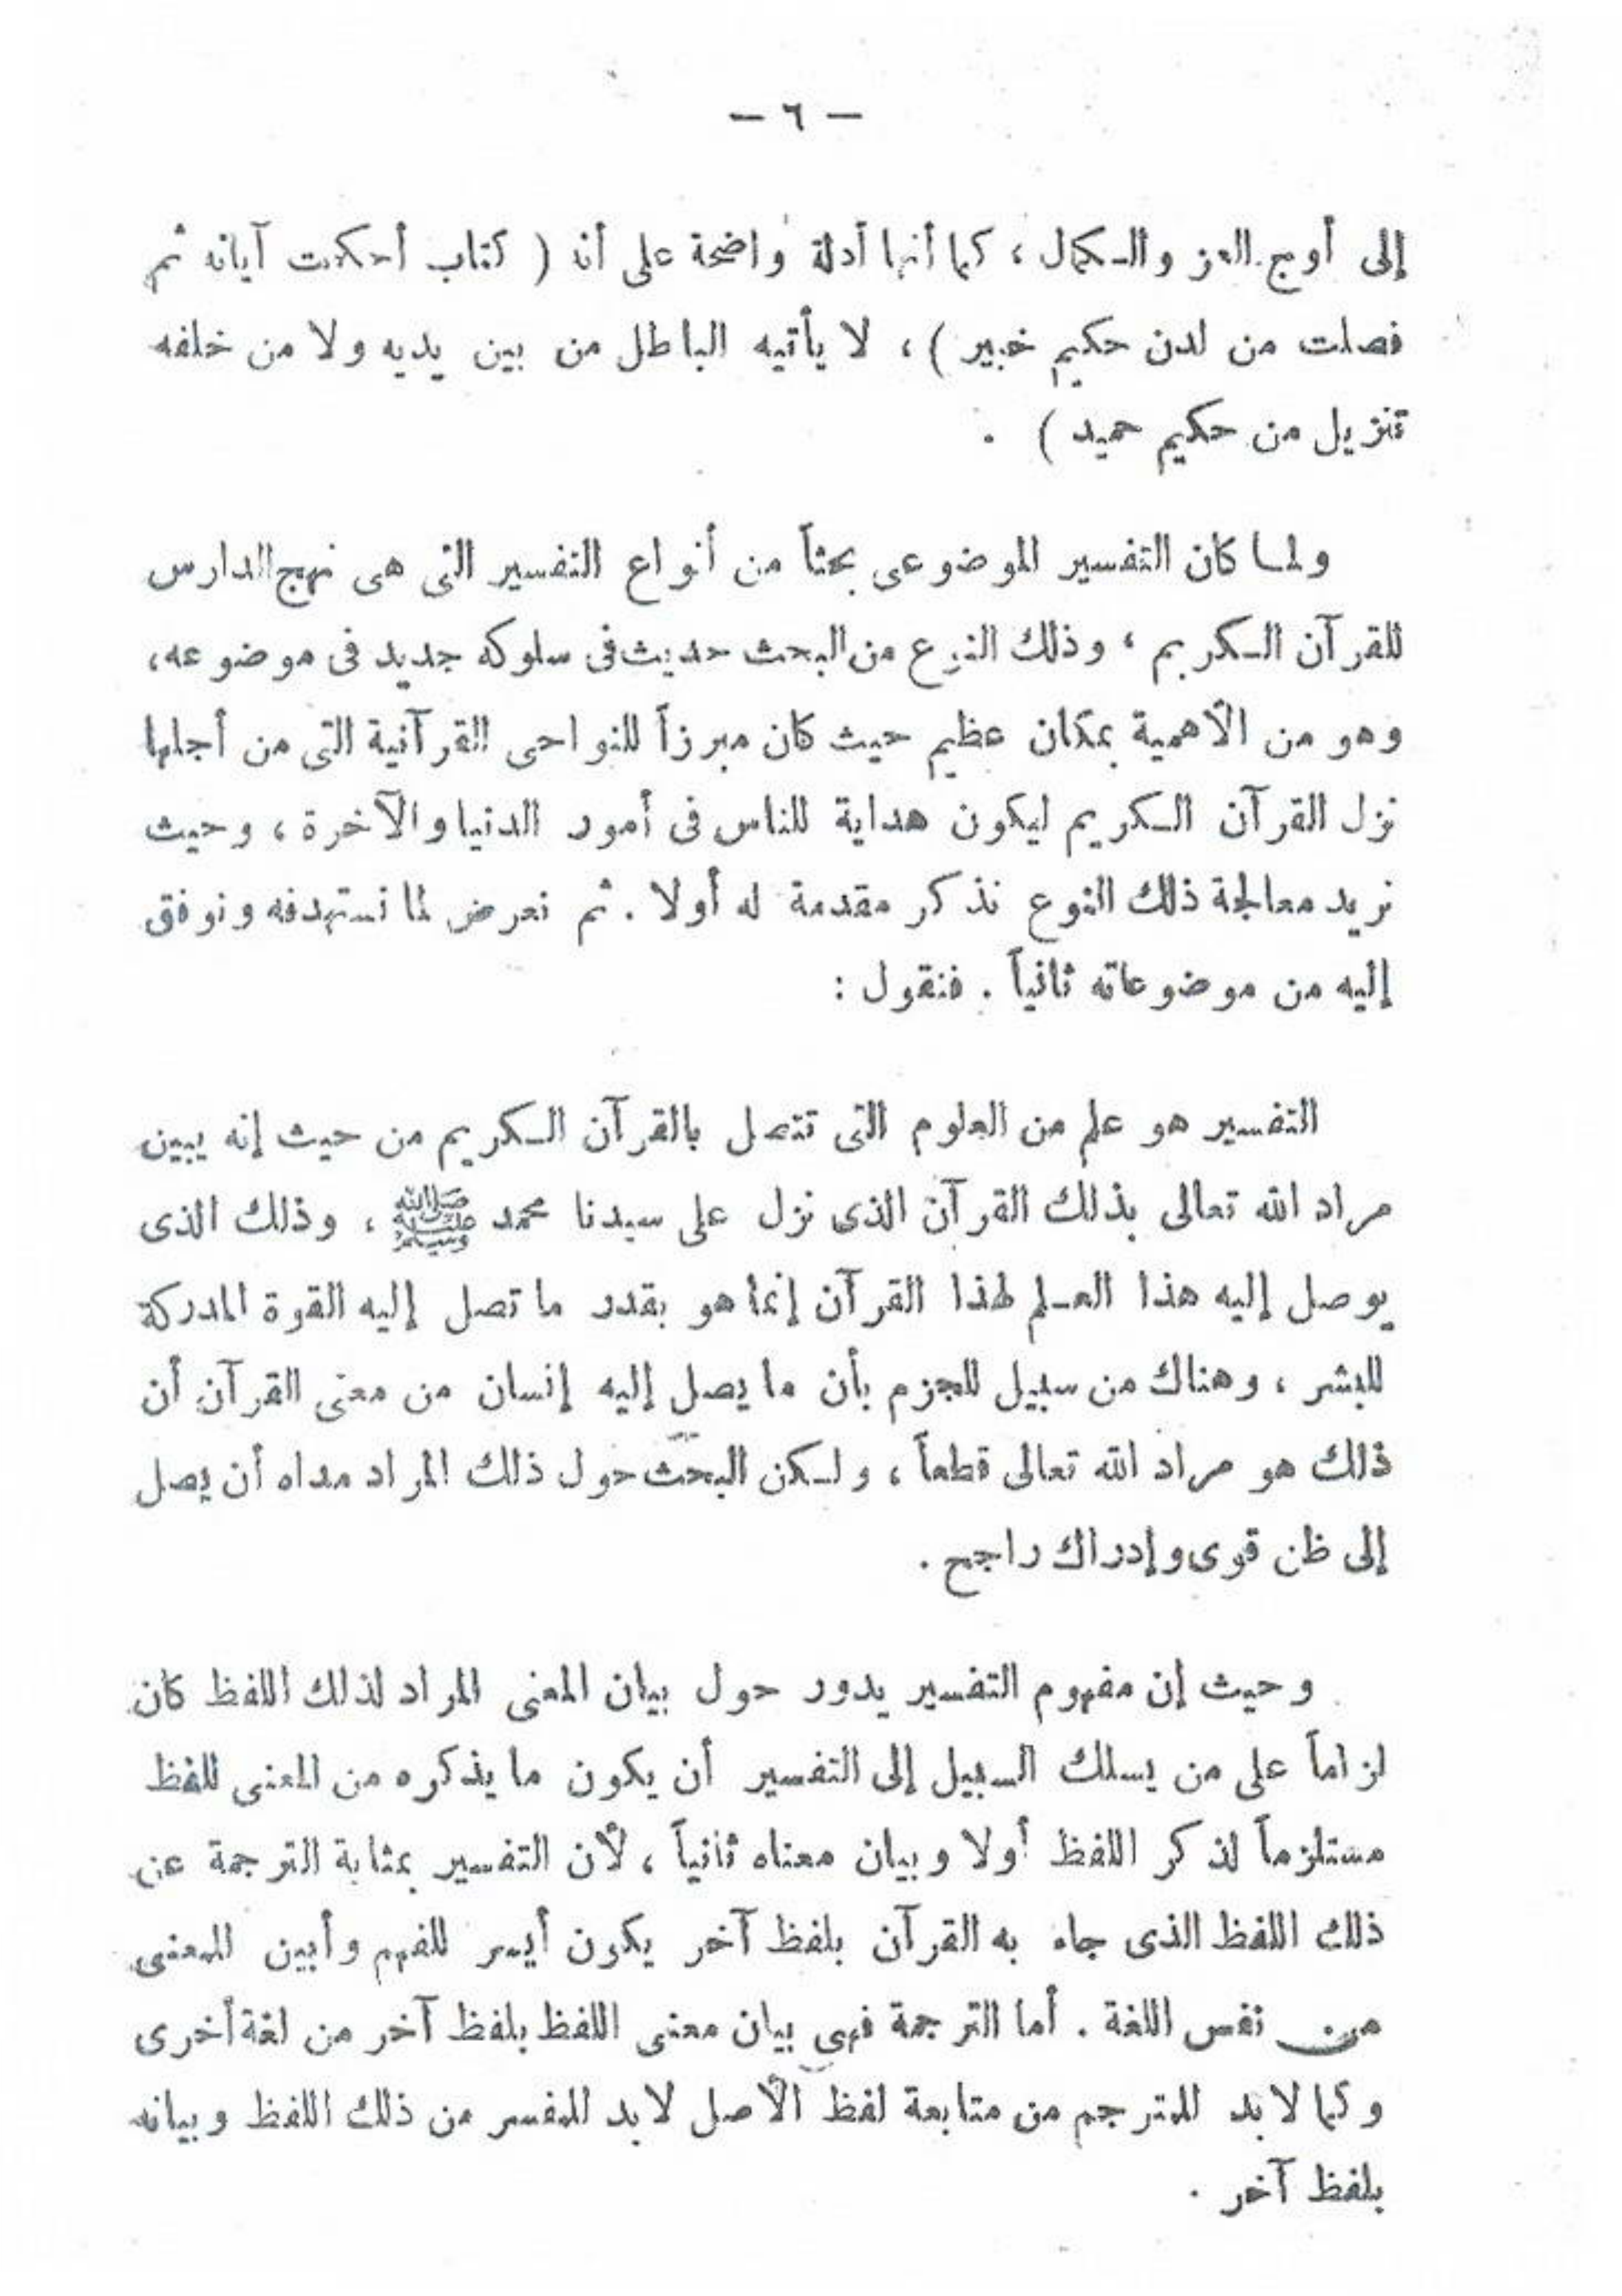 — ٦ —
إلى أوج العز والكمال ، كما أنها أدلة واضحة على أنه ( كتاب أحكمت آياته ثم
فصلت من لدن حكيم خبير ) ، لا يأتيه الباطل من بين يديه ولا من خلفه
تنزيل من حكيم حميد ) .
ولما كان التفسير الموضوعى بحثاً من أنواع التفسير التى هى نهج الدارس
للقرآن الكريم ، وذلك النوع من البحث حديث فى سلوكه جديد فى موضوعه ،
وهو من الأهمية بمكان عظيم حيث كان مبرزاً للنواحى القرآنية التى من أجلها
نزل القرآن الكريم ليكون هداية للناس فى أمور الدنيا والآخرة ، وحيث
نريد معالجة ذلك النوع نذكر مقدمة له أولا . ثم نعرض لما نستهدفه ونوفق
إليه من موضوعاته ثانياً . فنقول :
التفسير هو علم من العلوم التى تتصل بالقرآن الكريم من حيث إنه يبين
مراد الله تعالى بذلك القرآن الذى نزل على سيدنا محمد ﷺ ، وذلك الذى
يوصل إليه هذا العلم لهذا القرآن إنما هو بقدر ما تصل إليه القوة المدركة
للبشر ، وهناك من سبيل للجزم بأن ما يصل إليه إنسان من معنى القرآن أن
ذلك هو مراد الله تعالى قطعاً ، ولكن البحث حول ذلك المراد مداه أن يصل
إلى ظن قوى وإدراك راجح .
وحيث إن مفهوم التفسير يدور حول بيان المعنى المراد لذلك اللفظ كان
لزاماً على من يسلك السبيل إلى التفسير أن يكون ما يذكره من المعنى للفظ
مستلزماً لذكر اللفظ أولا وبيان معناه ثانياً ، لأن التفسير بمثابة الترجمة عن
ذلك اللفظ الذى جاء به القرآن بلفظ آخر يكون أيسر للفهم وأبين للمعنى
من نفس اللغة . أما الترجمة فهى بيان معنى اللفظ بلفظ آخر من لغة أخرى
وكما لابد للمترجم من متابعة لفظ الأصل لابد للمفسر من ذلك اللفظ وبيانه
بلفظ آخر .